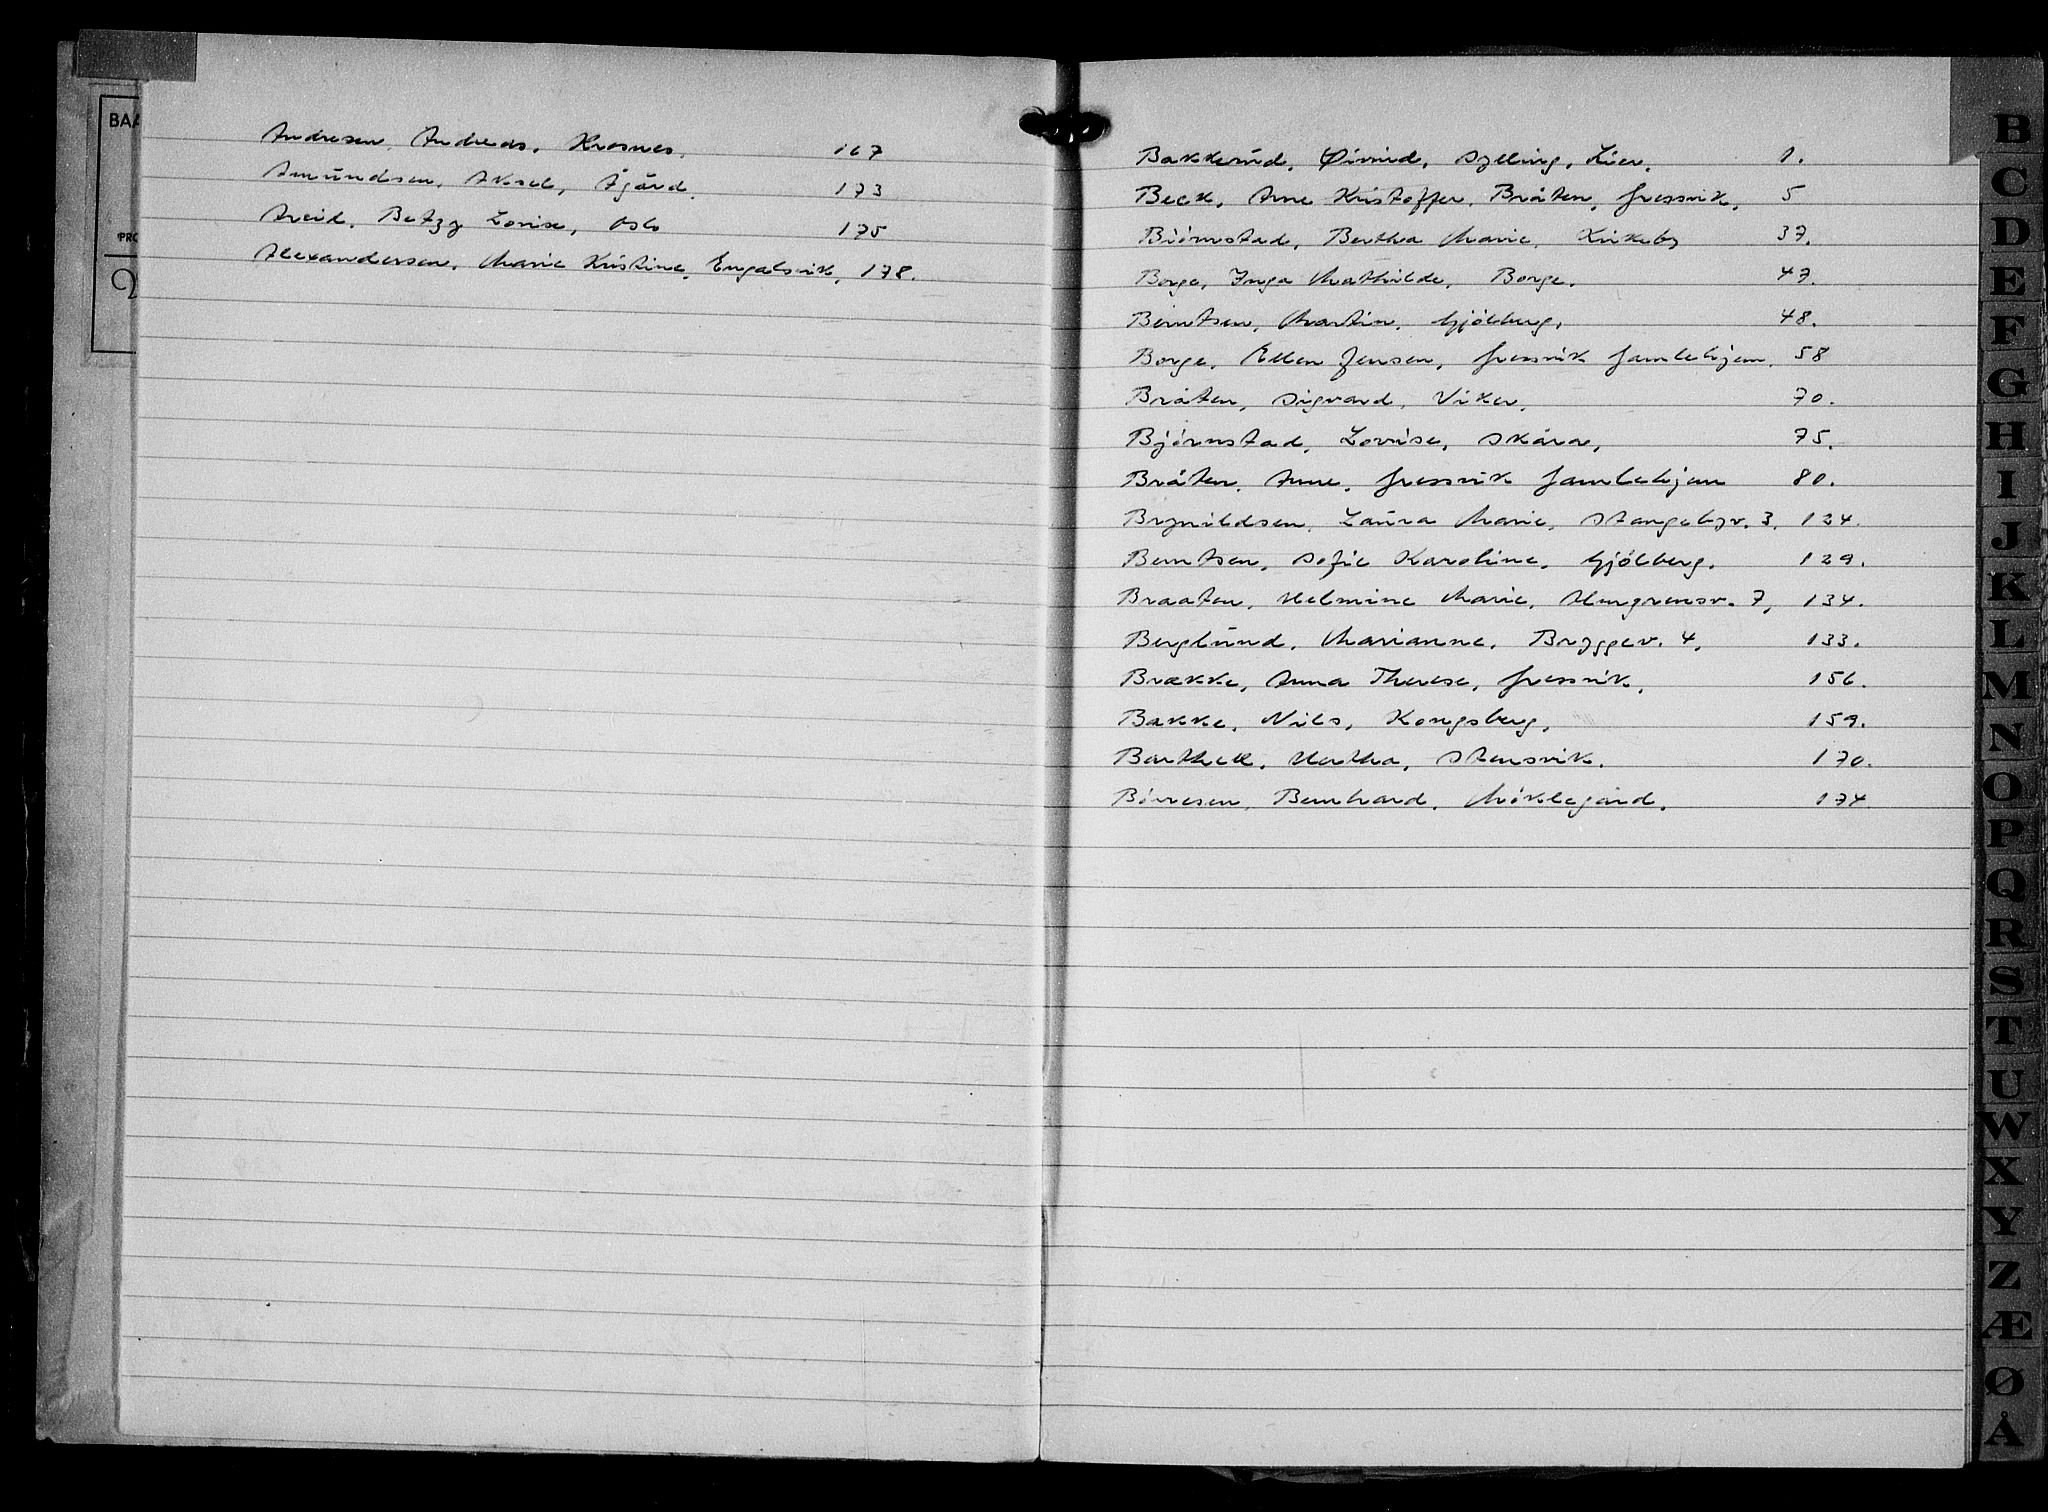 BAA
PRO
Andresen, Andreas, Krosnes, 167
Amundsen, Aksel, Ågård, 173
Arvid, Betzy Lovise, Oslo 175
Alexandersen, Marie Kristine, Engalsvik, 178.
Bakkerud, Øivind, Sylling, Lier, 1.
Beck, Arne Kristoffer, Bråten, Gressvik, 5
Björnstad, Bertha Marie, Kirkeby 37.
Borge, Inga Mathilde, Borge, 47.
Berntsen, Martin, Gjölberg, 48.
Borge, Ellen Jensen, Gressvik Gamlehjem, 58
Bråten, Sigvard, Viker, 70.
Björnstad, Lovise, Skåra, 75.
Bråten, Anne, Gressvik Gamlehjem 80.
Brynildsen, Laura Marie, Stangebyv. 3, 124.
Berntsen, Sofie Karoline, Gjölberg, 129.
Braaten, Helmine Marie, Almgrensv. 7, 134.
Berglund, Marianne, Bryggev. 4, 133.
Brække, Anna Therese, Gressvik, 156.
Bakke, Nils, Kongsberg, 159.
Barthell, Hertha, Stensvik, 170.
Börresen, Bernhard, Möklegård, 174
B
C
D
E
F
G
H
I
J
K
L
M
N
O
P
Q
R
S
T
U
W
X
Y
Z
Æ
Ø
Å